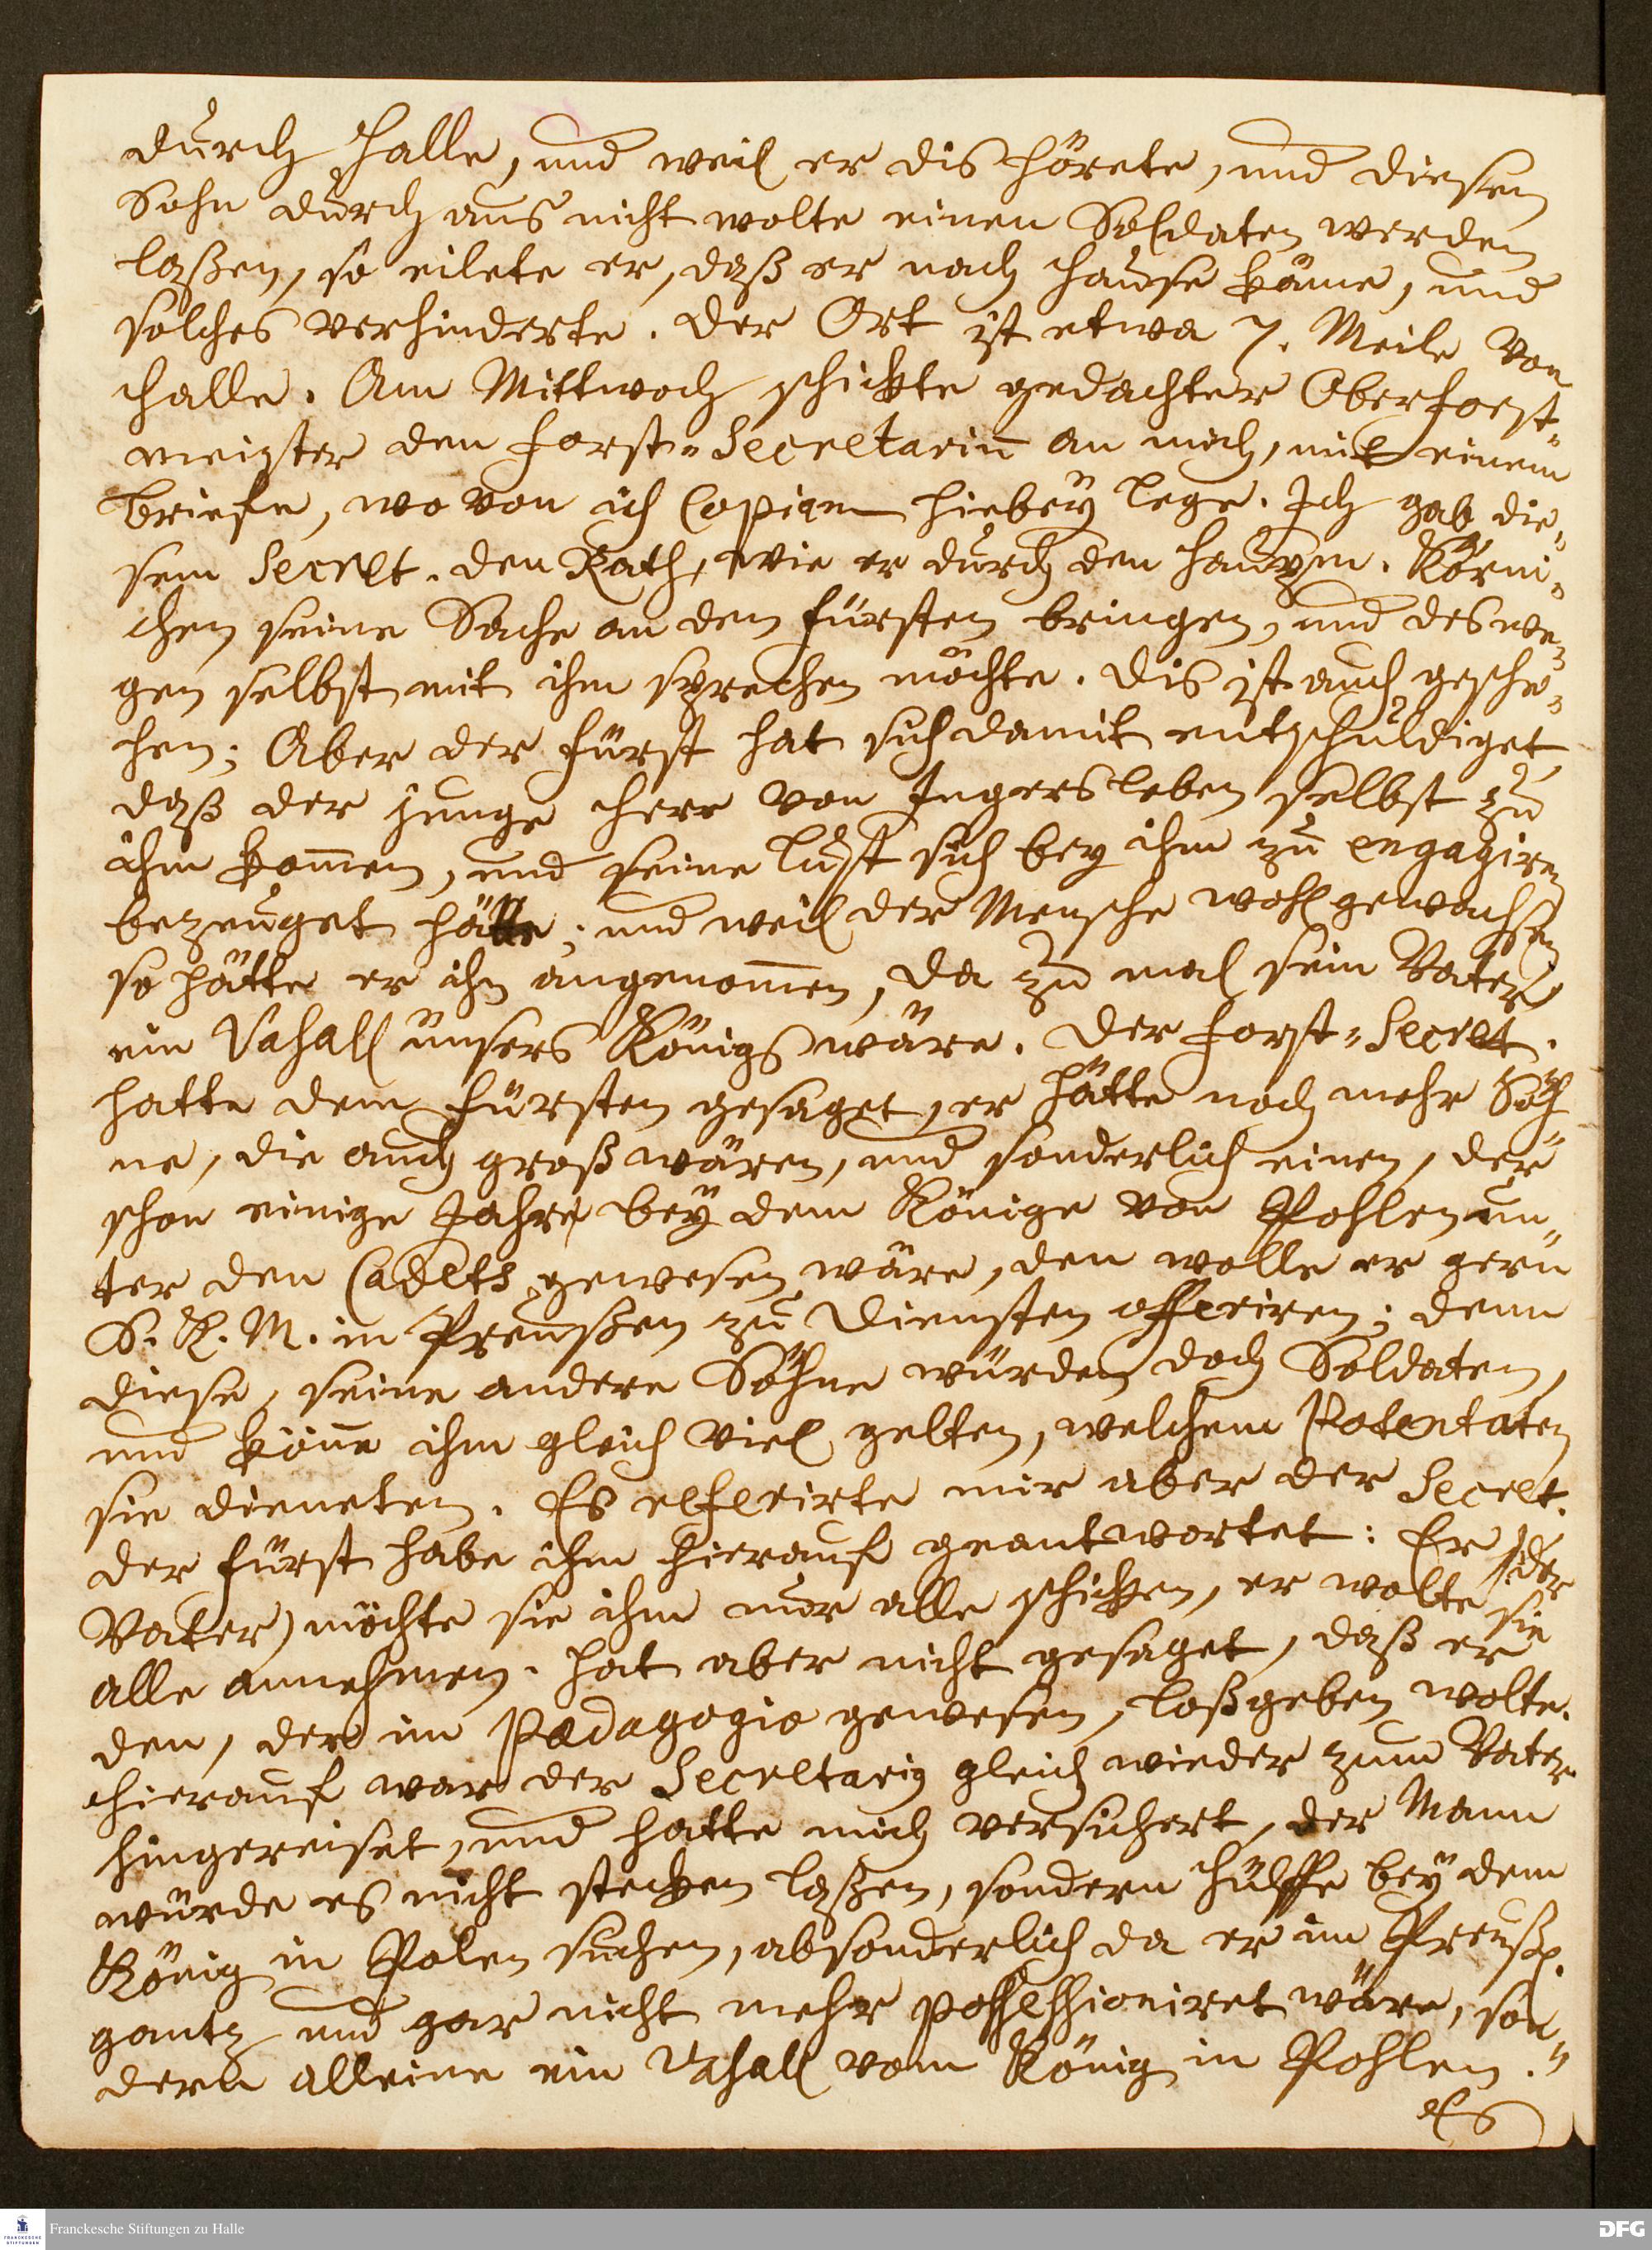 durch Halle, und weil er dis hörete, und diesen
Sohn durchaus nicht wolte einen Soldaten werden
laßen, so eilete er, daß er nach Hause käme, und
solches verhinderte. Der Ort ist etwa 7. Meile von
Halle. Am Mittwoch schickte gedachter Oberforst-
meister den Forst-Secretarium an mich, mit einem
Briefe, wovon ich Copiam hiebey lege. Ich gab die-
sem Secret. den Rath, wie er durch den Hauptm. Körni-
chen seine Sache an den Fürsten bringen, und deswe-
gen selbst mit ihm sprechen möchte. Dis ist auch gesche-
hen; Aber der Fürst hat sich damit entschuldiget,
daß der junge Herr von Ingersleben selbst zu
ihm kommen, und seine Lust sich bey ihm zu engagiren
bezeuget hätte; und weil der Mensche wohl gewachsen
so hätte er ihn angenommen, da zumal sein Vater
ein Vasall unsers Königs wäre. Der Forst-Secret.
hatte dem Fürsten gesaget, er hätte noch mehr Söh-
ne, die auch groß wären, und sonderlich einen, der
schon einige Jahre bey dem Könige von Pohlen un-
ter den Cadets gewesen wäre, den wolle er gern
S. K. M. in Preußen zu Diensten offeriren; denn
diese, seine andere Söhne würden doch Soldaten,
und könne ihm gleich viel gelten, welchem Potentaten
sie dieneten. Es referirte mir aber der Secret.
der Fürst habe ihm hierauf geantwortet: Er (der
Vater) möchte sie ihm nur alle schicken, er wolte sie
alle annehmen. Hat aber nicht gesaget, daß er
den, der im Pædagogio gewesen, loßgeben wolte.
Hierauf war der Secretariq gleich wieder zum Vater
hingereiset, und hatte mich versichert, der Mann
würde es nicht stecken laßen, sondern Hülffe bey dem
König in Polen suchen, absonderlich da er im Preuß.
gantz und gar nicht mehr possessioniret wäre, son-
dern alleine ein Vasall vom König in Pohlen.
Es
Franckesche Stiftungen zu Halle
DFG